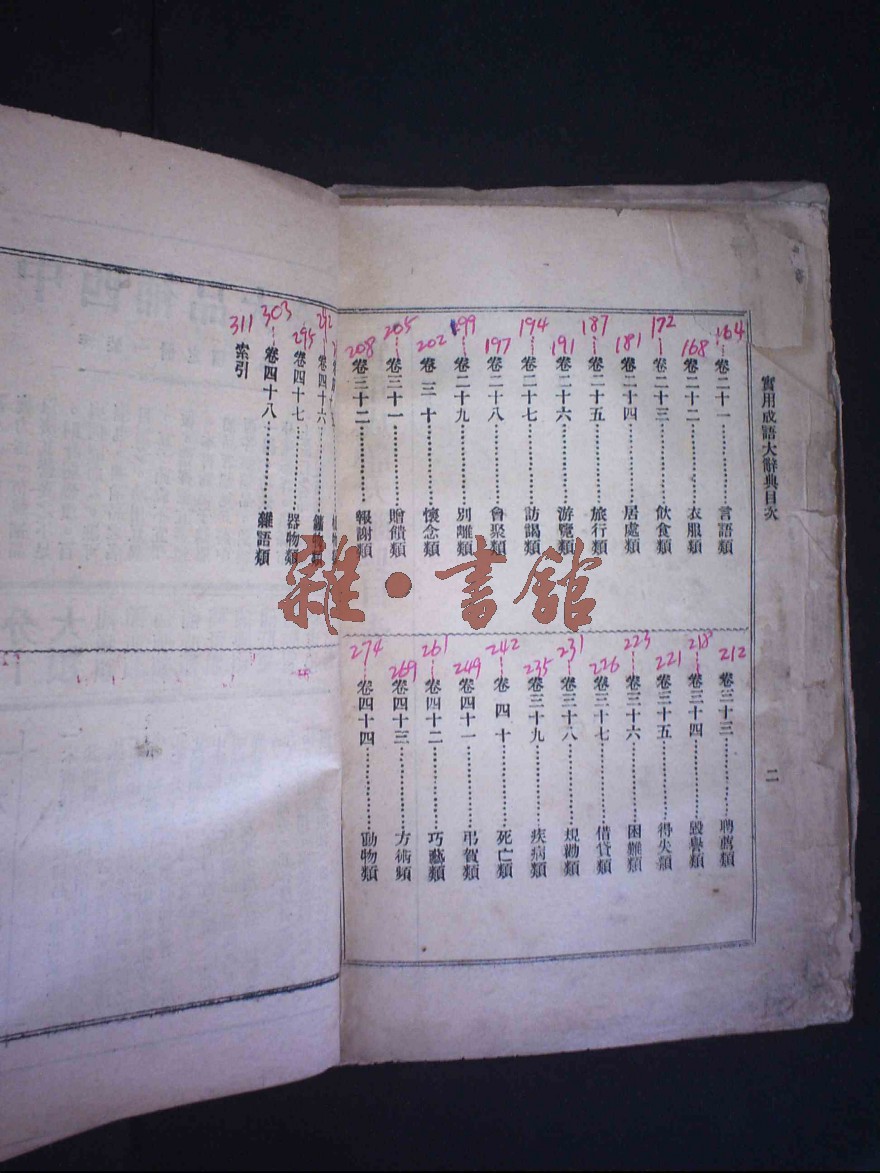 實用成語大辭典目次
二
164 卷二十一 言語類
168 卷二十二 衣服類
172 卷二十三 飲食類
181 卷二十四 居處類
187 卷二十五 旅行類
191 卷二十六 游覽類
194 卷二十七 訪謁類
197 卷二十八 會聚類
199 卷二十九 別離類
202 卷三十 懷念類
205 卷三十一 贈饋類
208 卷三十二 報謝類
212 卷三十三 聘薦類
218 卷三十四 毀譽類
221 卷三十五 得失類
223 卷三十六 困難類
226 卷三十七 借貸類
231 卷三十八 規勸類
235 卷三十九 疾病類
242 卷四十 死亡類
249 卷四十一 弔賀類
261 卷四十二 巧藝類
269 卷四十三 方術類
274 卷四十四 動物類
292 卷四十六
295 卷四十七 器物類
303 卷四十八 雜語類
311 索引
雜·書館